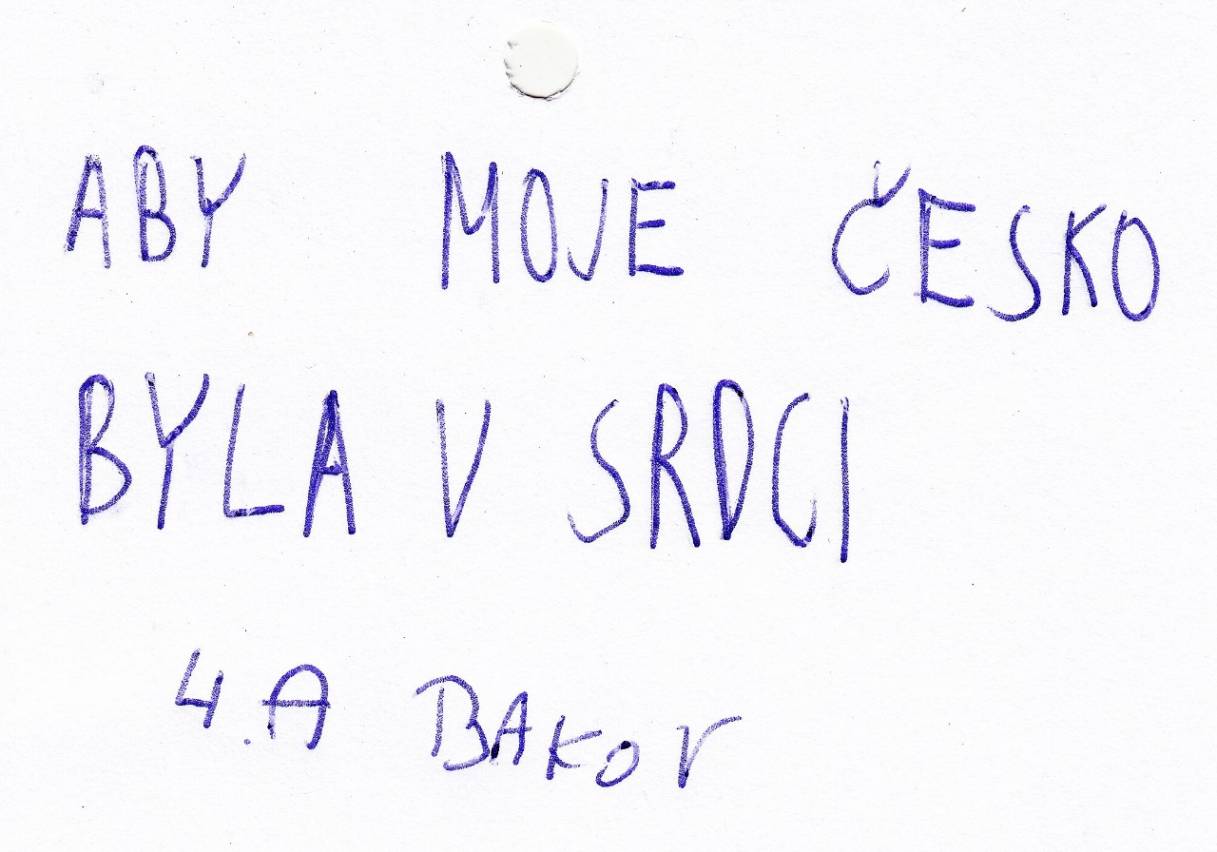 ABY MOJE ČESKO
BYLA V SRDCI
4.A BAKOV